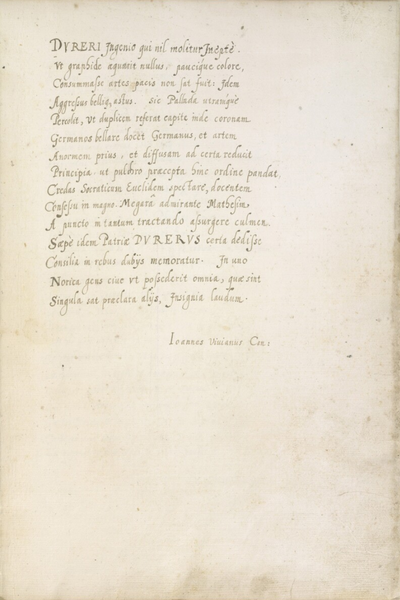 DVRERI Ingenio qui nil molitur Ineptè.
Vt graphide aequavit nullus, paucique colore,
Consummasse artes pacis non sat fuit: Idem
Aggressus belliq, astus. sic Pallada utramque
Percolit, vt duplicem referat capite inde coronam.
Germanos bellare docet Germanus, et artem
Anormem prius, et diffusam ad certa reducit
Principia, ut pulchro praecepta hinc ordine pandat.
Credas Socraticum Euclidem spectare, docentem
Consessu in magno. Megara admirante Mathesim,
A puncto in tantum tractando assurgere culmen.
Saepè idem Patriae DVRERVS certa dedisse
Consilia in rebus dubijs memoratur. In uno
Norica gens ciue vt possederit omnia, quae sint
Singula sat praeclara alijs, Insignia laudum.
Ioannes Viuianus Cen: